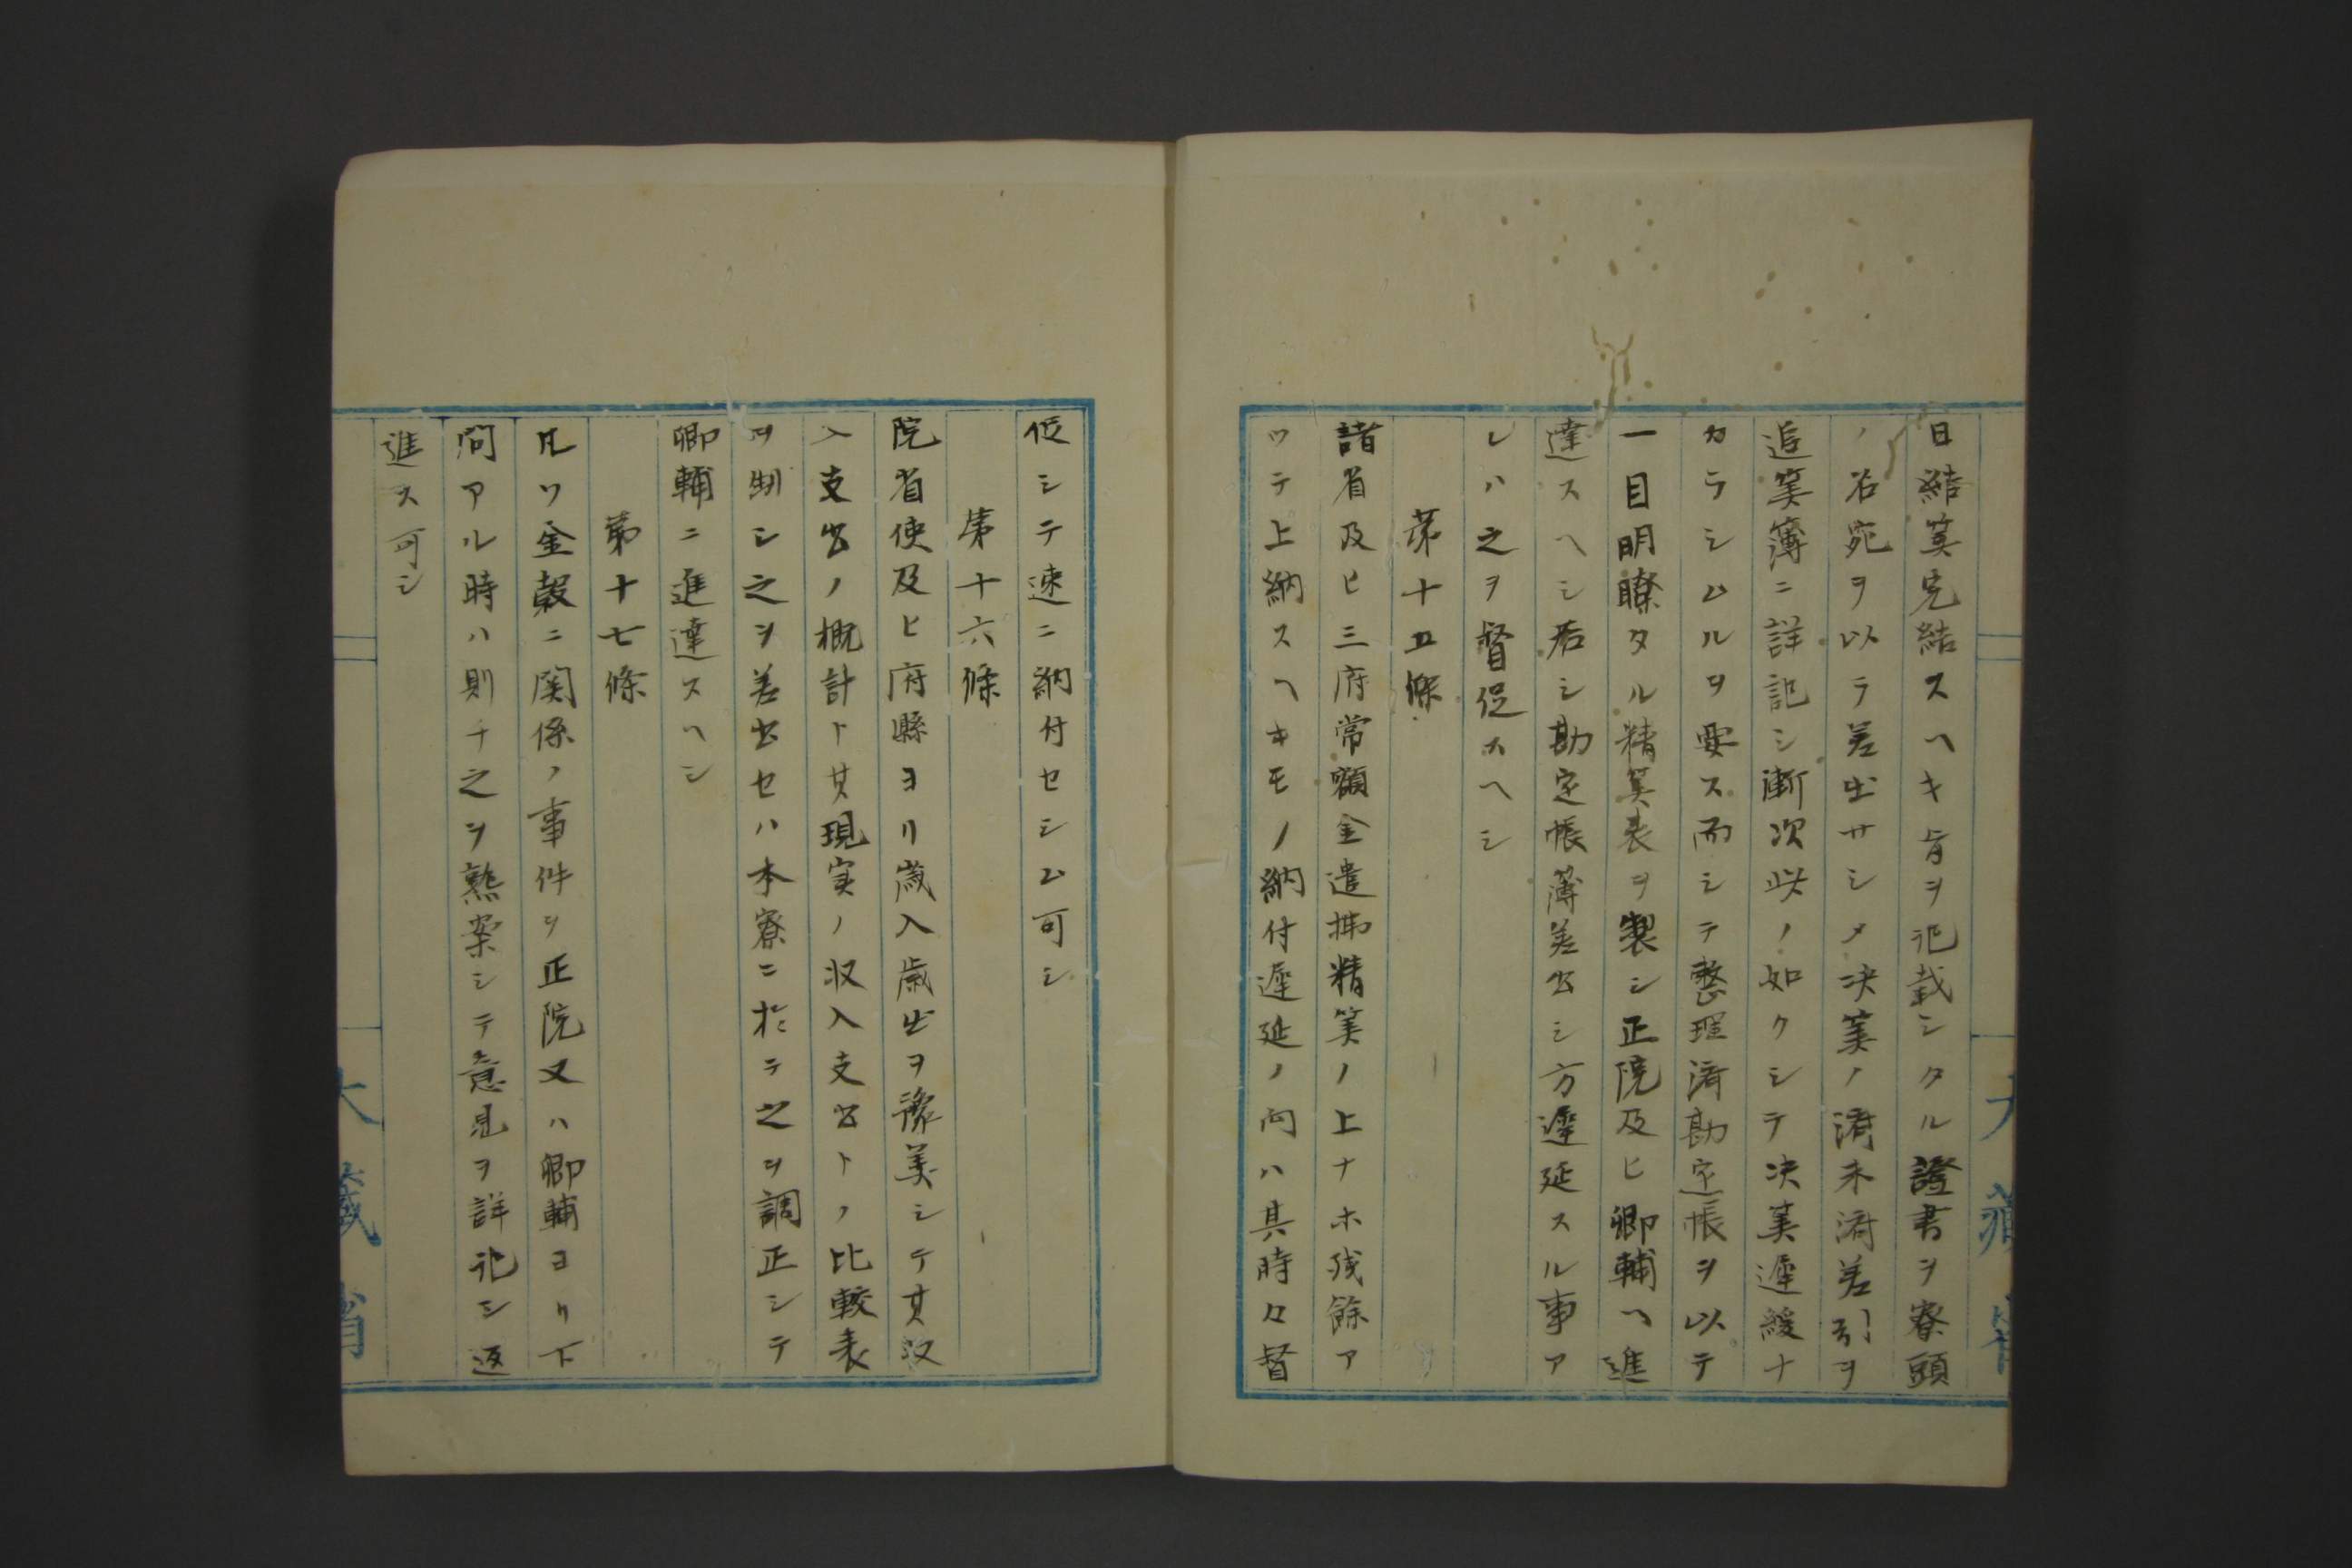 日結筭完結スヘキ旨ヲ記載シタル證書ヲ寮頭
ノ名宛ヲ以テ差出サシメ决筭ノ濟未濟差引ヲ
追筭簿ニ詳記シ漸次此ノ如クシテ决筭遲緩ナ
カラシムルヲ要ス而シテ整理濟勘定帳ヲ以テ
一目明瞭タル精筭表ヲ製シ正院及ヒ卿輔ヘ進
達スヘシ若シ勘定帳簿差出シ方遲延スル事ア
レハ之ヲ督促スヘシ
第十五條
諸省及ヒ三府常額金遣拂精筭ノ上ナホ残餘ア
ツテ上納スヘキモノ納付遲延ノ向ハ其時々督
促シテ速ニ納付セシム可シ
第十六條
院省使及ヒ府縣ヨリ歳入歳出ヲ豫筭シテ其収
入支出ノ概計ト其現実ノ収入支出トノ比較表
ヲ制シ之ヲ差出セハ本寮ニ於テ之ヲ調正シテ
卿輔ニ進達スヘシ
第十七條
凡ソ金穀ニ関係ノ事件ヲ正院又ハ卿輔ヨリ下
問アル時ハ則チ之ヲ熟案シテ意見ヲ詳記シ返
進ス可シ
大藏省